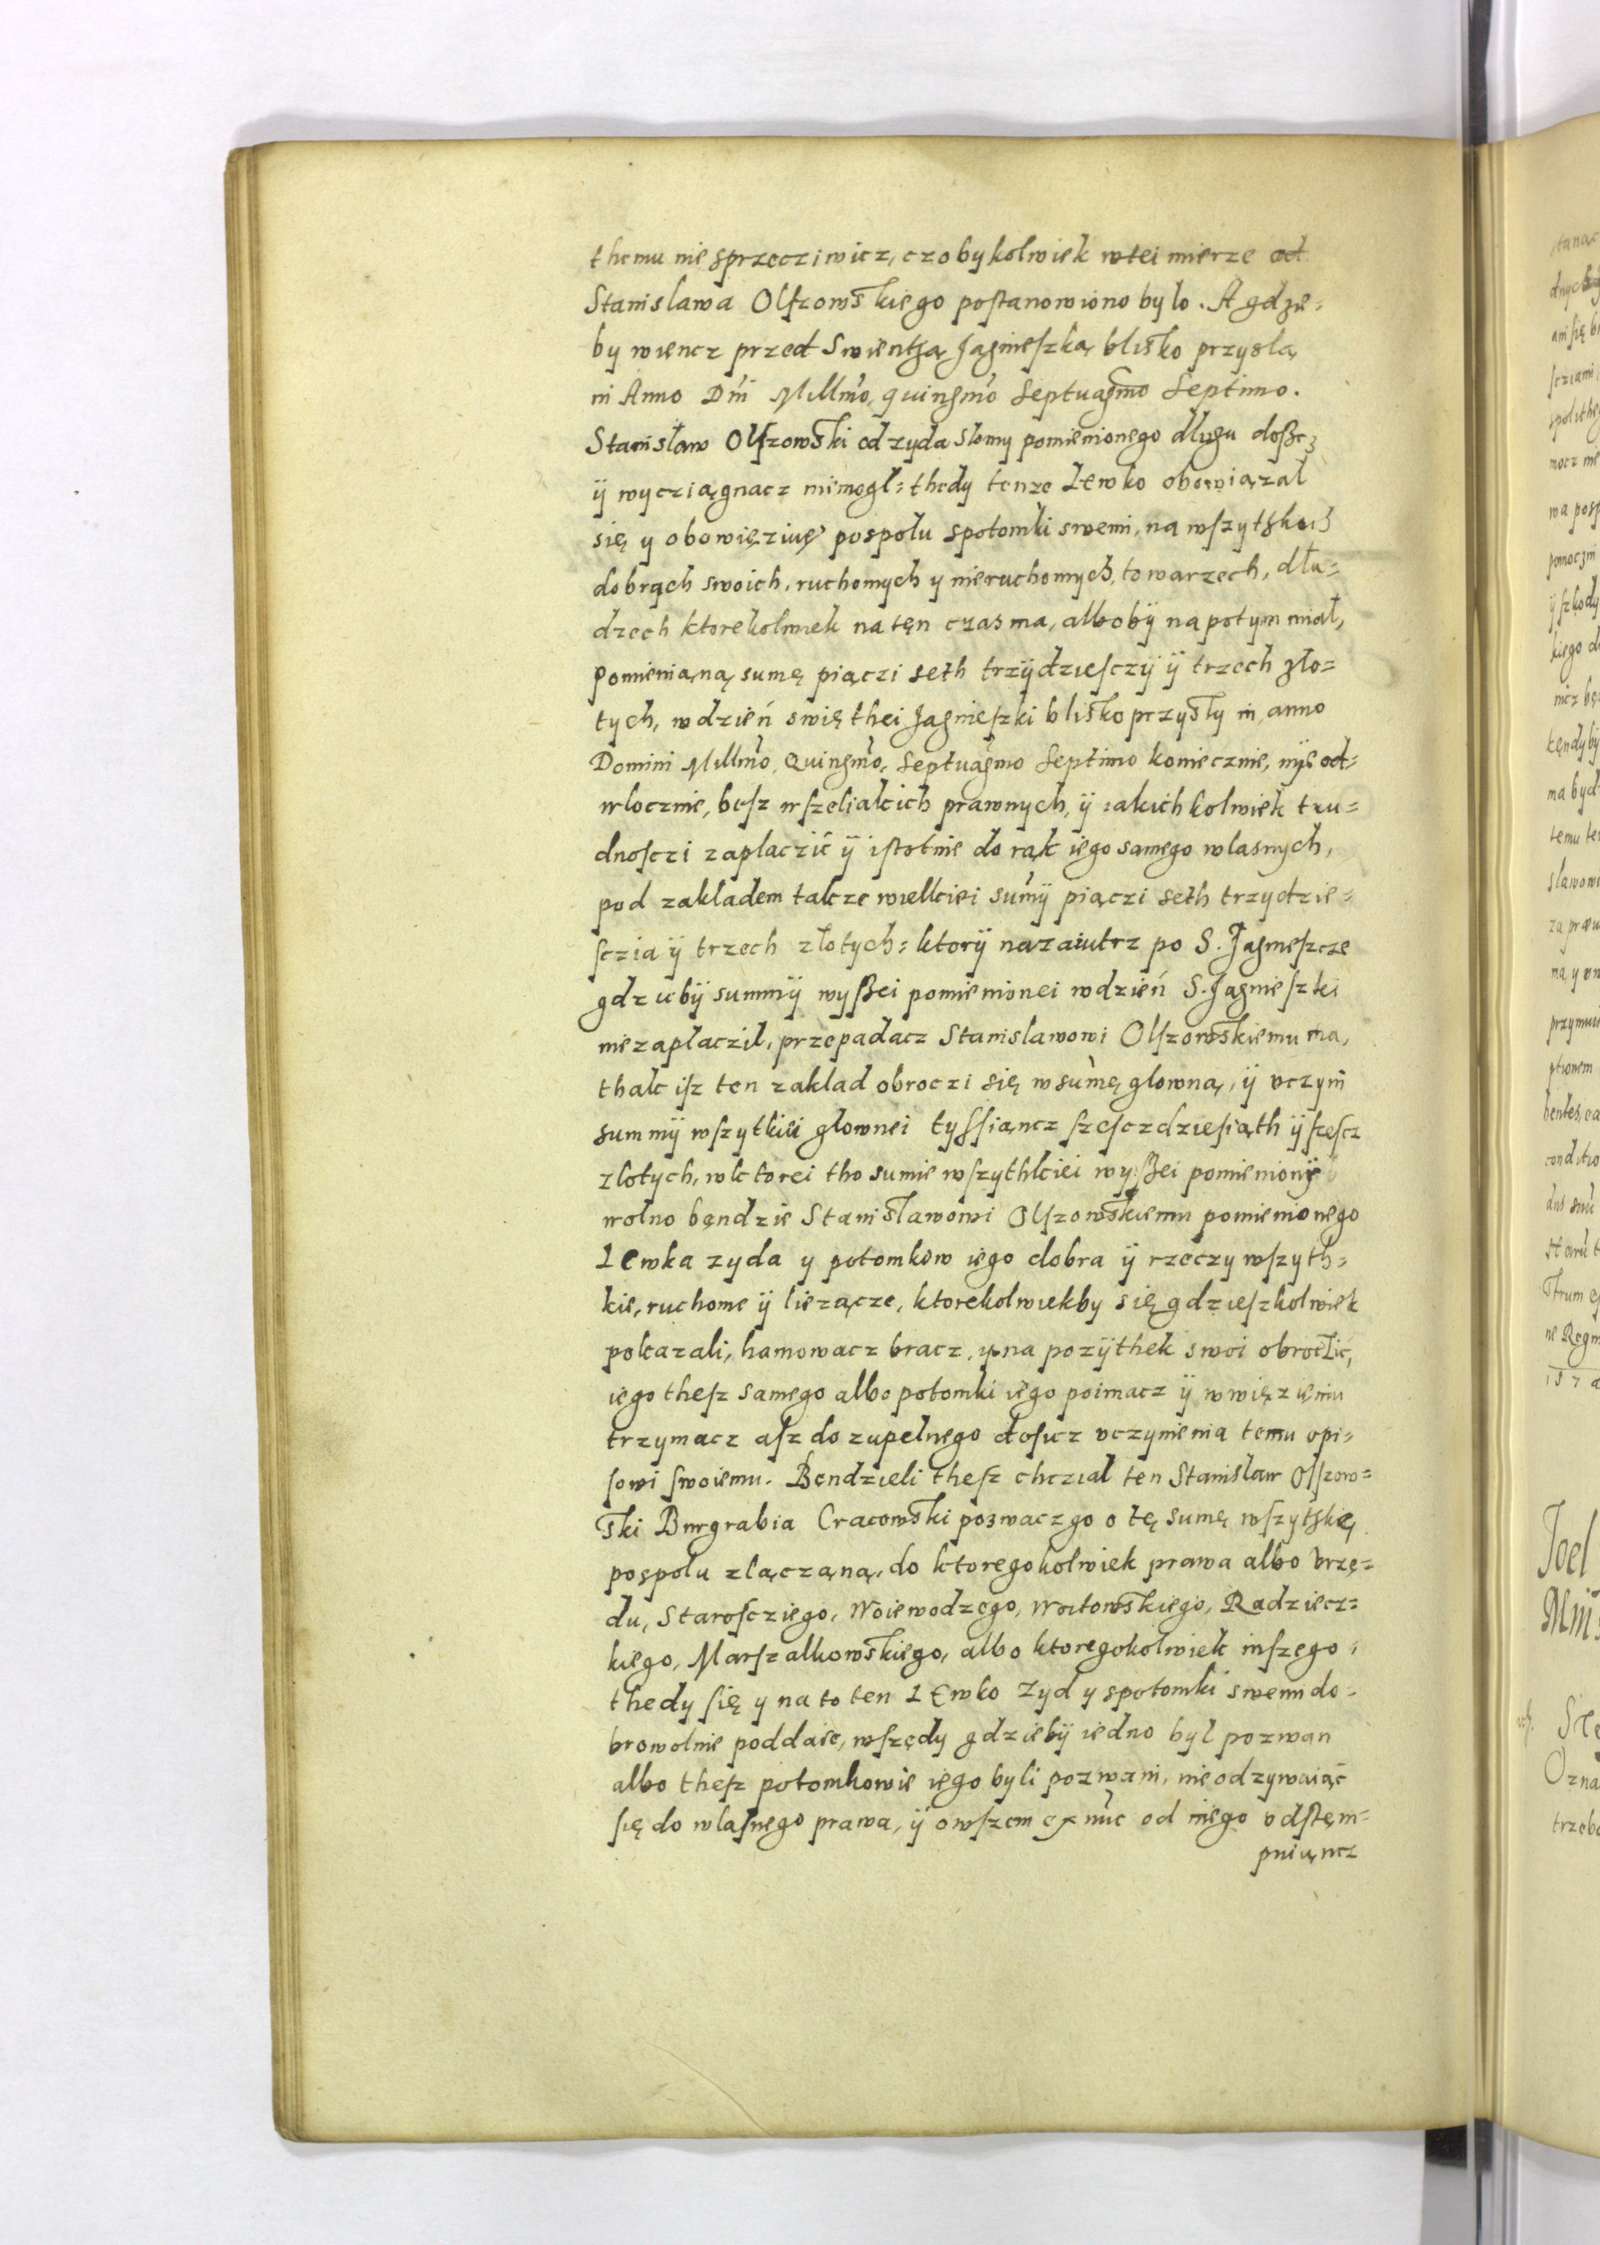 themu nie sprzecziwicz, czobykolwiek wtei mierze od
Stanislawa Olſzowskiego poſtanowiono bylo. A gdzie=
by wiencz przed Swientzą Jagnieſzką blisko przyslą
in Anno Dni Millmo, quingmo Septuagmo Septimo.
Stanisław Olſzowski od zyda Slomy pomienionego długu doſzcz
ÿ wycziągnacz niemogl= thedy tenze Lewko obowiązal
się y obowięziuę pospolu spotomki swemi, na wſzytzkich
dobrąch swoich, ruchomych y nieruchomych, towarzech, dłu=
dzech ktorekolwiek na tęn czas ma, albobÿ napotym miał,
pomienianą sumę piączi seth trzÿdzieſczÿ ÿ trzech zło=
tych, wdzień swięthei Jagnieſzki blisko przysły in, anno
Domini Millmo, Quingmo, Septuagmo Septimo koniecznie, nÿe od=
wlocznie, beſz wſzeliakich prawnych, ÿ iakichkolwiek tru=
dnoſczi zaplaczić ÿ iſtotnie do rąk iego samego wlasnych,
pod zakladem takze wielkiei sumÿ piączi seth trzydzie=
ſczia ÿ trzech złotych= ktorÿ nazaiutrz po S. Jagnieſzcze
gdziebÿ summÿ wyſzei pomienionei wdzień S. Jagnieſzki
niezaplaczil, przepadacz Stanislawowi Olſzowskiemu ma,
thak iſz ten zaklad obroczi się wsumę glowną, ÿ vczyni
summÿ wſzytkiei głownei tyſſiąncz ſzeſczdzieſiąth ÿ ſzeſcz
zlotych, wktorei tho sumie wſzythkiei wyſzei pomienionÿ
wolno będzie Stanisławowi Olſzowskiemu pomienionego
Lewka zyda y potomkow iego dobra ÿ rzeczy wſzyth=
kie, ruchome ÿ lieząncze, ktorekolwiekby się gdzieſzkolwiek
pokazali, hamowacz bracz, y na pozÿthek swoi obroczić,
iego theſz samego albo potomki iego poimacz ÿ wwięzieniu
trzymacz aſz do zupelnego doſicz vczynienia temu opi=
ſowi ſwoiemu. Bendzieli theſz chczial ten Stanislaw Olſzow=
ski Burgrabia Cracowski pozwacz go o tę sumę wſzytzkę
pospolu zlączaną, do ktoregokolwiek prawa albo Vrzę=
du, Staroſcziego, Woiewodzego, Woitowskiego, Radziecz=
kiego, Marſzalkowskiego, albo ktoregokolwiek inſzego=
thedy ſię y na to ten Lewko Zyd y spotomki swemi do=
browolnie poddaie, wſzędy gdziebÿ iedno byl pozwan
albo theſz potomkowie iego byli pozwani, nieodzywaiąć
ſię do wlaſnego prawa, ÿ owſzem ex nuc od niego odſtęm=
pniąncz